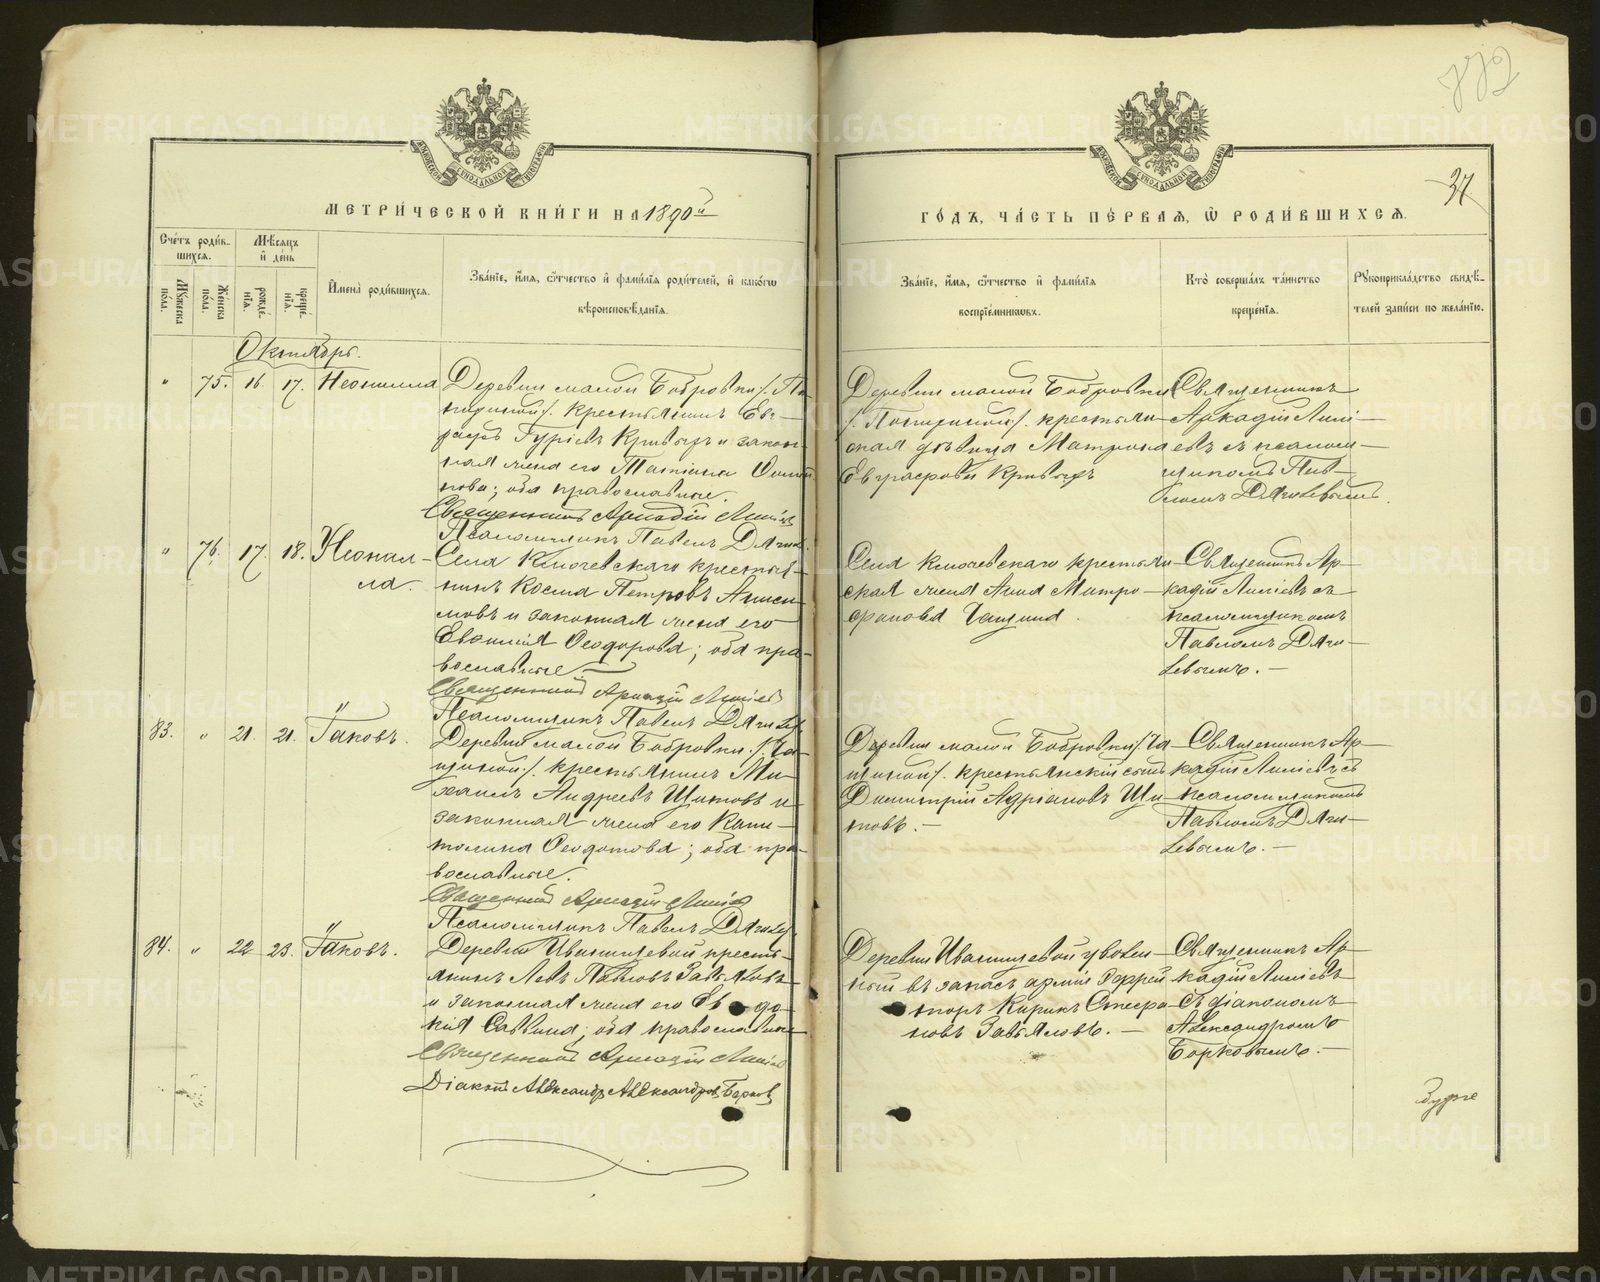 772
37.
МЕТРИ́ЧЕСКОЙ КНИ́ГИ НА 1890й
ГО́ДЪ, ЧА́СТЬ ПЕ́РВАЯ, Ѡ РОДИ́ВШИХСЯ.
Сче́тъ роди́вшихся.
Мѣ́сяцъ и҆ де́нь
Мꙋ́жеска по́ла.
Же́нска по́ла.
рожде́нїя.
креще́нїя.
И҆мена̀ роди́вшихся.
Зва́нїе, и҆́мя, ѻ҆́тчество и҆ фами́лїя роди́телей, и҆ како́гѡ
вѣроисповѣ́данїя.
Зва́нїе, и҆́мя, ѻ҆́тчество и҆ фами́лїя
воспрїе́мникѡвъ.
Кто̀ соверша́лъ та́инство
креще́нїя.
Рꙋкоприкла́дство свидѣ́-
телей за́писи по жела́нїю.
Октябрь.
" 75. 16. 17. Неонилла
Деревни малой Бобровки /. По-
пириной /. крестьянинъ Ев-
графъ Гурiевъ Кривыхъ и закон-
ная жена его Татiана
; оба православные.
Священникъ Аркадiй
Псаломщикъ Павелъ
Деревни малой Бобровки
/. /. крестьян-
ская дѣвица Матрона
Евграфова Кривыхъ
Священникъ
Аркадiй
евъ съ псалом-
щикомъ Пав-
ломъ Дягилевымъ.
" 76. 17. 18. Неонил-
ла.
Села Ключевскаго крестья-
нинъ Косма Петровъ Аниси-
мовъ и законная жена его
Евфимiя Ѳеодорова; оба пра-
вославные
Священникъ Аркадiй
Псаломщикъ Павелъ
Села Ключевскаго крестьян-
ская жена Анна Митро-
фанова
Священникъ Ар-
кадiй съ
псаломщикомъ
Павломъ Дяги-
левымъ. —
83. " 21. 21. Iаковъ.
Деревни малой Бобровки /.
/. крестьянинъ Ми-
хаилъ Андреевъ Щитовъ и
законная жена его Капи-
толина Ѳеодотова; оба пра-
вославные.
Священникъ Аркадiй
Псаломщикъ Павелъ
Деревни малой Бобровки /.
/. крестьянскiй сынъ
Димитрiй Адрiановъ Щи-
товъ. —
Священникъ Ар-
кадiй съ
псаломщикомъ
Павломъ Дяги-
левымъ. —
84. " 22 23. Iаковъ.
Деревни Иванищевой кресть-
янинъ Левъ Павловъ Завьяловъ
и законная жена его Ев до-
кiя Саввина; оба православные
Священникъ Аркадiй
Дiаконъ Александръ Александровъ Борков
Деревни Иванищевой уволен-
ный въ запасъ армiи Ефрей-
торъ Кирикъ Стефа-
новъ Завьяловъ. —
Священникъ Ар-
кадiй
съ дiакономъ
Александромъ
Борковымъ. —
METRIKI.GASO-URAL.RU